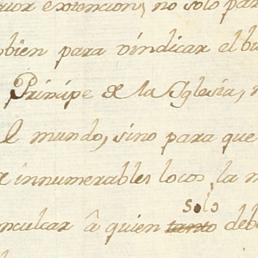 extencion, no solo par
bien para vindicar el bu
Principe de la Iglesia,
el mundo, sino para que
innumerables locos, la m
solo
inculcar â quien tanto deb